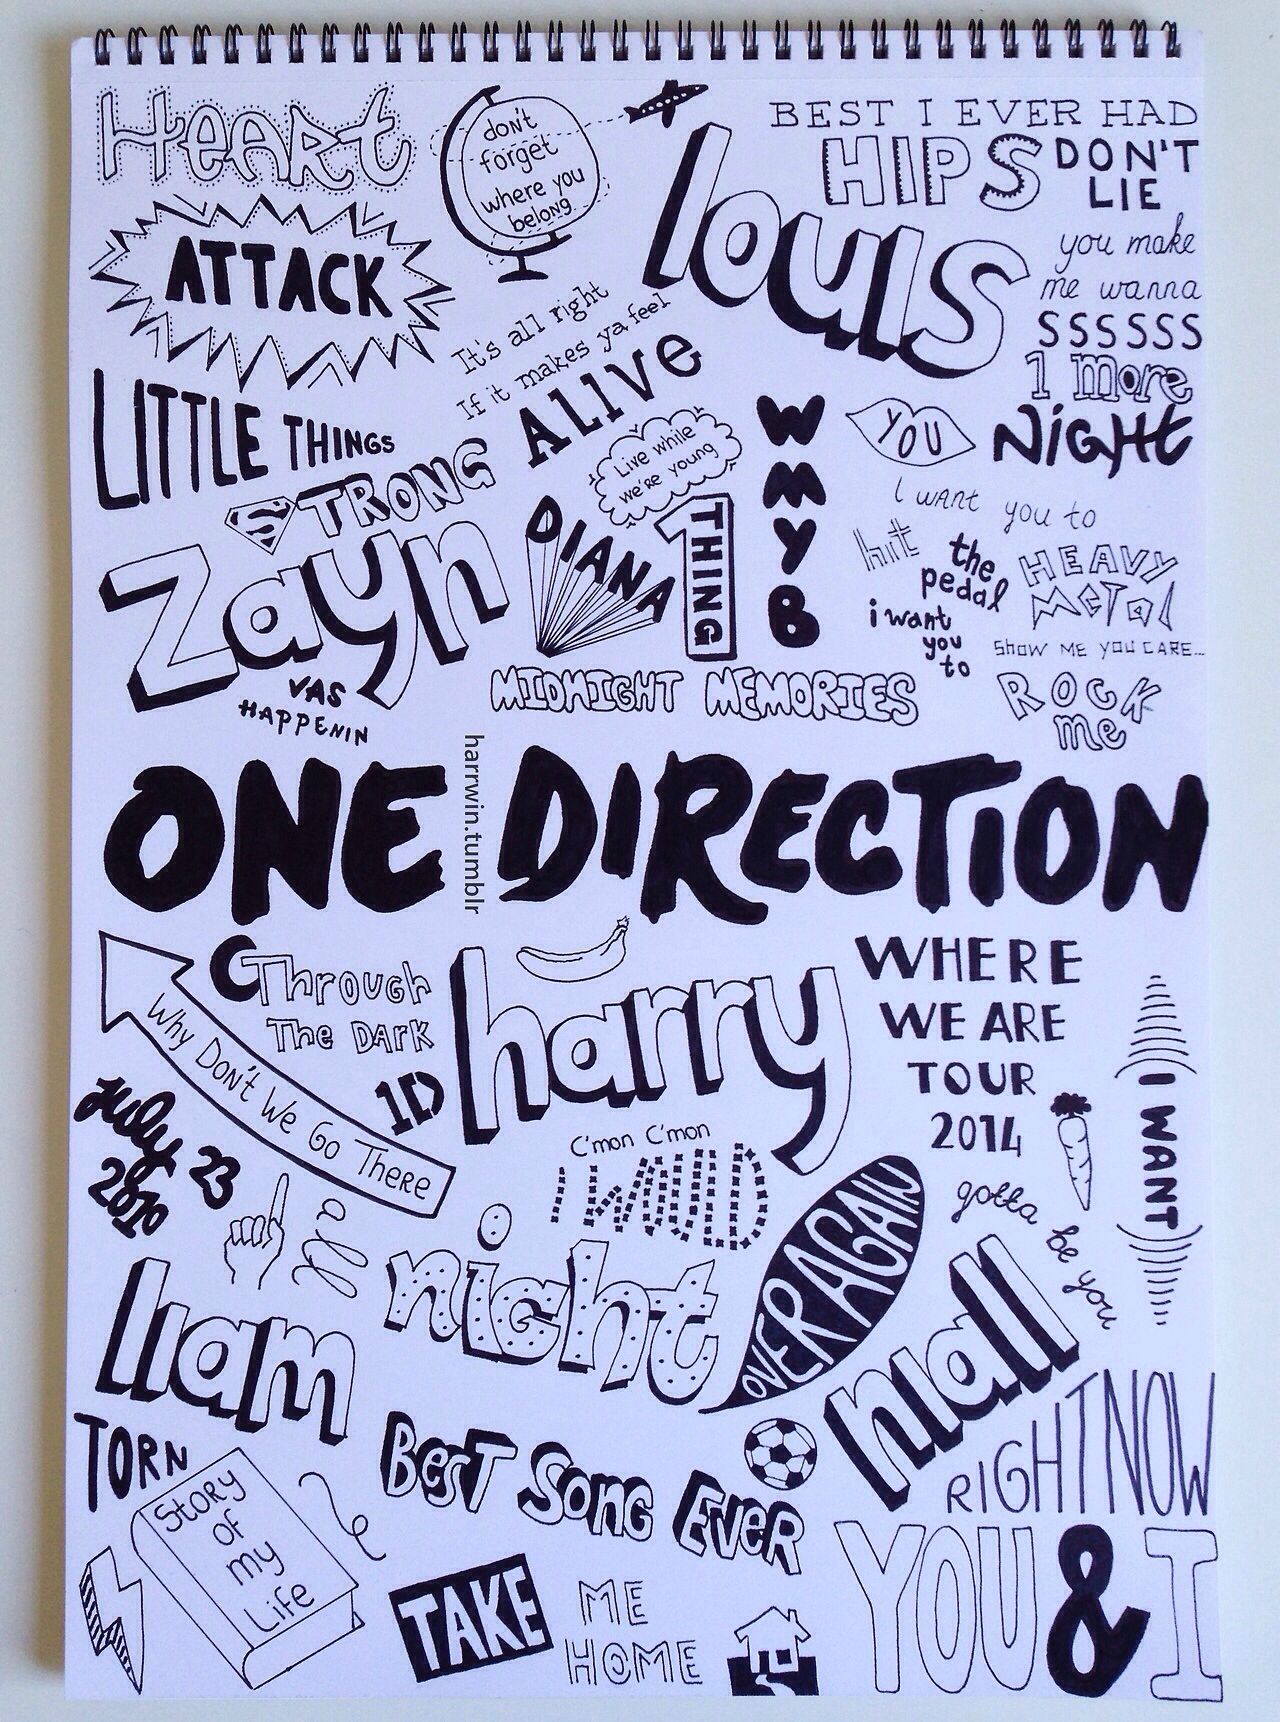 Heart
ATTACK
don't
forget
where you
belong
BEST I EVER HAD
HIPS DON'T
LIE
louis
you make
me wanna
ssssss
1 more
NIGHT
It's all right
If it makes ya feel
ALIVE
LITTLE THINGS
STRONG
Live while
we're young
WMYB
YOU
zayn
VAS
HAPPENIN
DIANA
1 THING
I want you to
hit
the
pedal
HEAVY
METAL
i want
you
to
SHOW ME YOU CARE...
ROCK
me
MIDNIGHT MEMORIES
ONE DIRECTION
harrwin.tumblr
C'mon C'mon
Through
The DARK
harry
WHERE
WE ARE
TOUR
2014
Why Don't We Go There
1D
July 23
2010
I WOULD
OVER AGAIN
I WANT
gotta be you
all
night
liam
niall
TORN
Story
of
my
Life
BEST SONG EVER
RIGHT NOW
TAKE
ME
HOME
YOU & I